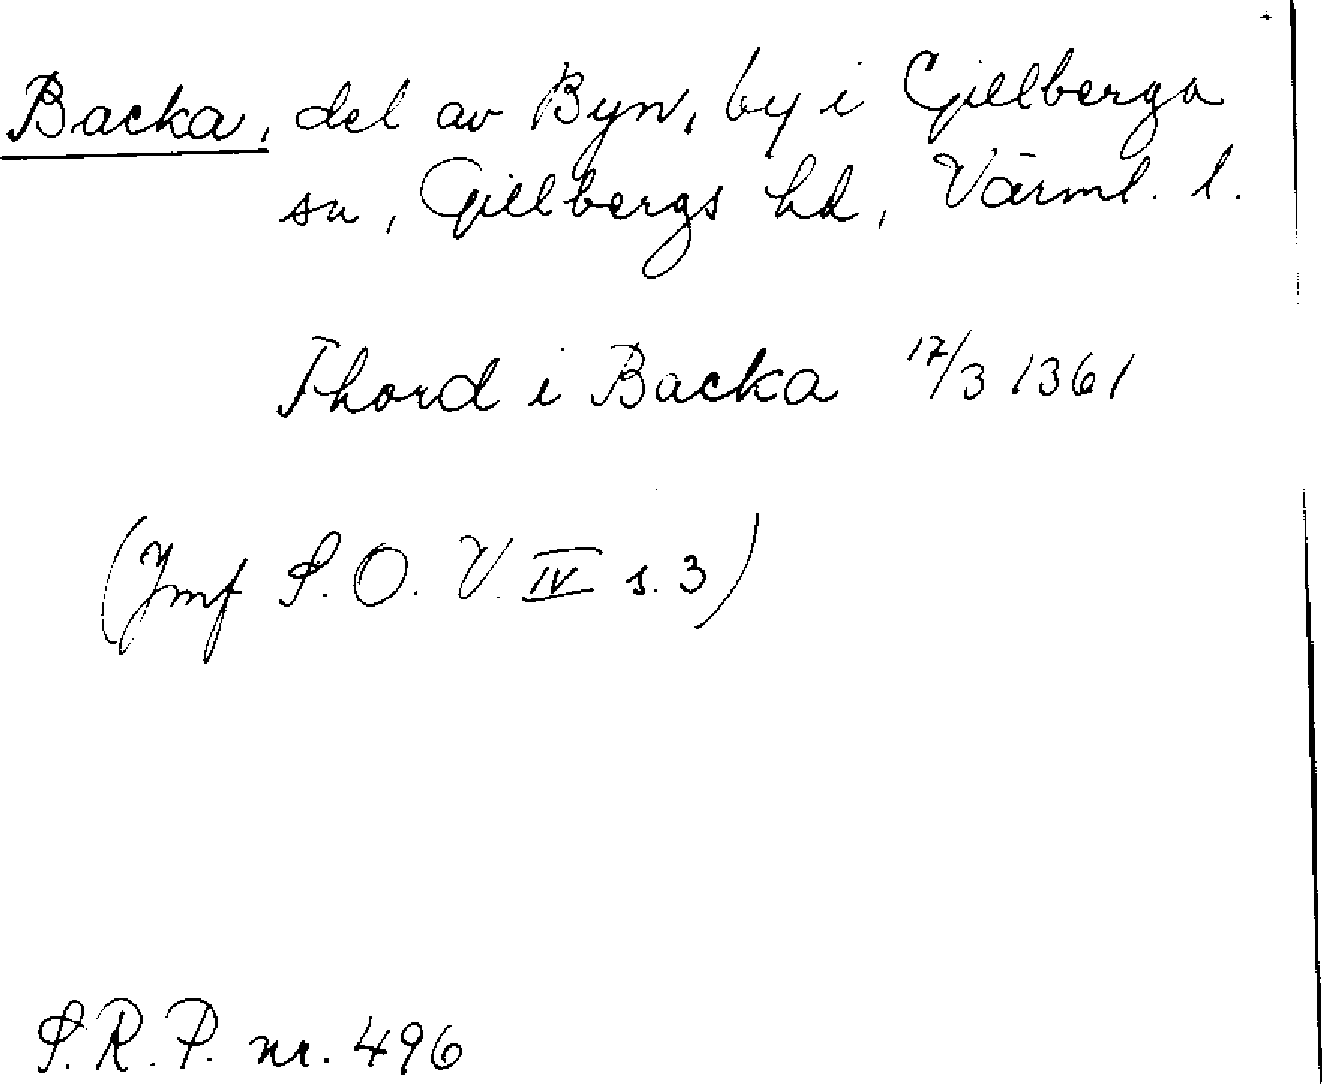 Backa, del av Byn, by i Gillberga
sn, Gillbergs hd, Värml. l.
Thord i Backa 17/3 1361
(Jmf S. O. V. IV s. 3)
S. R. P. nr. 496